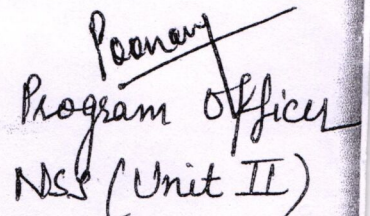 Poonam
Program Officer
NSS (Unit II)